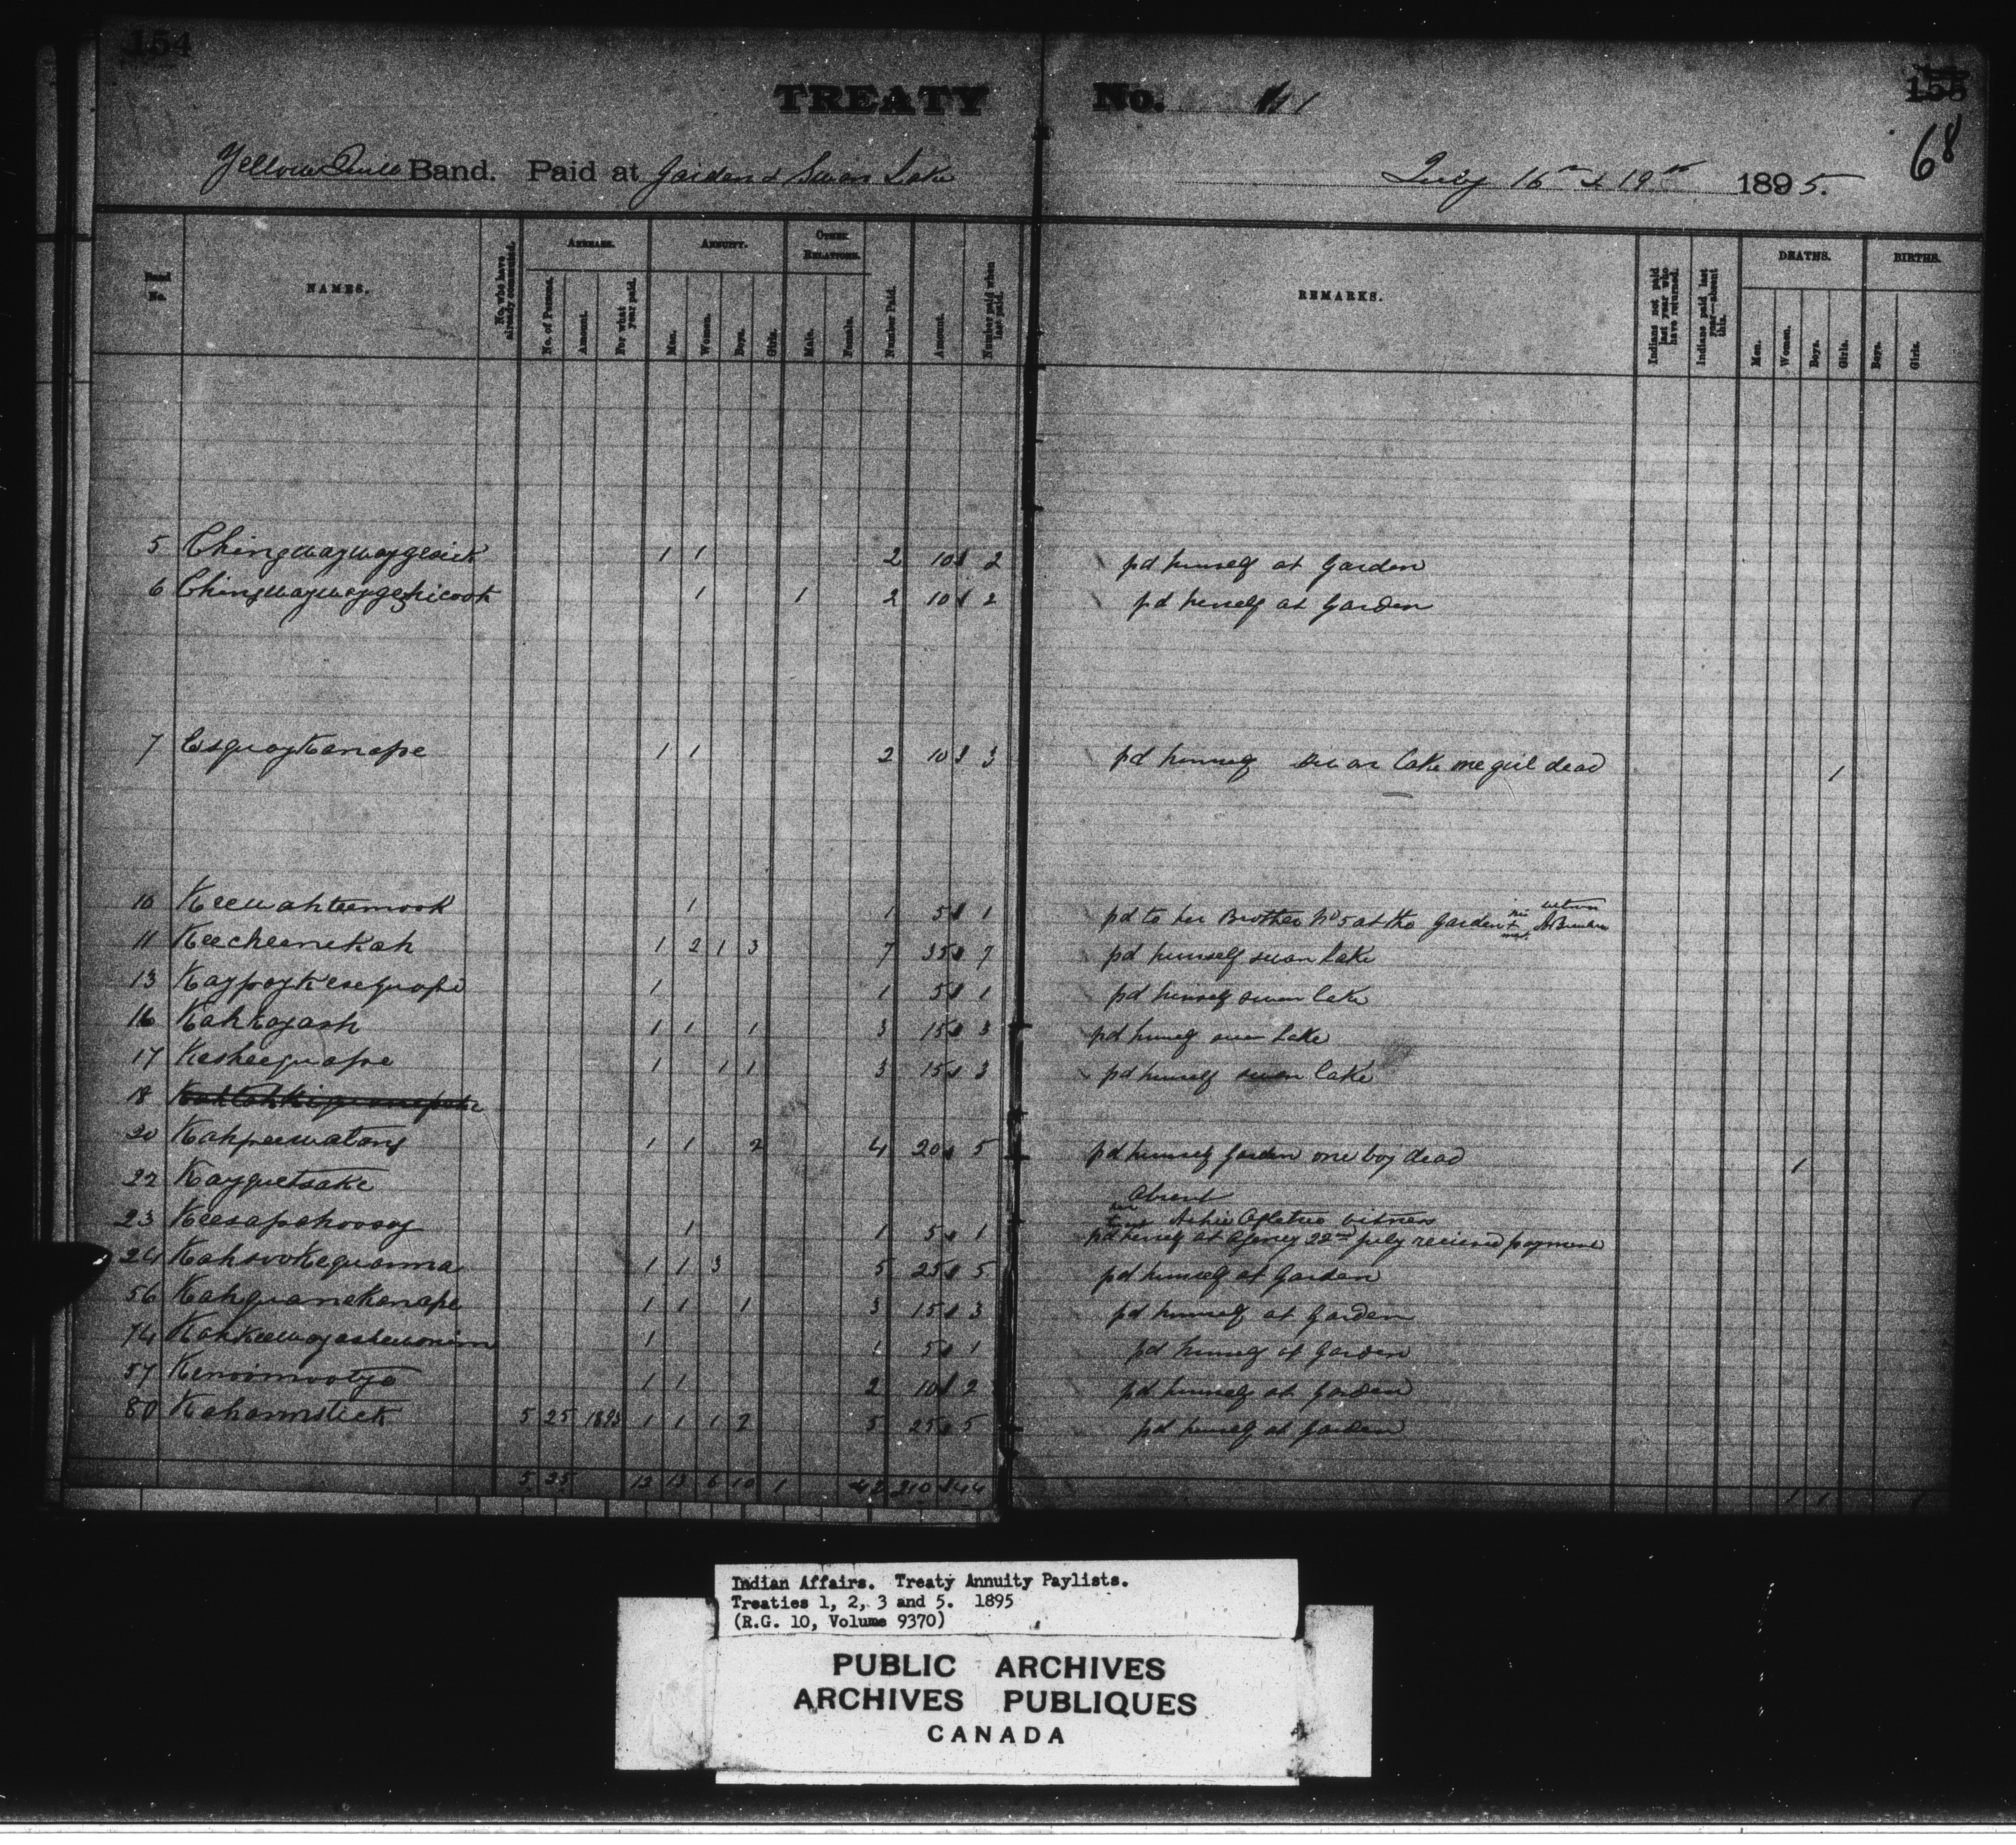 154
TREATY No. 1
155
68
Yellow Quill Band. Paid at Garden & Swan Lake July 16th & 19th 1895.
Band No.
NAMES.
No. who have already commuted.
ARREARS.
No. of Persons.
Amount.
For what year paid.
ANNUITY.
Men.
Women.
Boys.
Girls.
OTHER RELATIONS.
Male.
Female.
Number Paid.
Amount.
Number paid when last paid.
REMARKS.
Indians not paid last year who have returned.
Indians paid last year—absent this.
DEATHS.
Men.
Women.
Boys.
Girls.
BIRTHS.
Boys.
Girls.
5 Chingwaywaygesick 1 1 2 10 2 pd himself at Garden
6 Chingwaywaygezhicook 1 1 2 10 2 pd herself at Garden
7 Esquaykanape 1 1 2 10 3 pd himself Swan Lake one girl dead 1
10 Keewahteemook 1 1 5 1 pd to her Brother No 5 at the Garden
11 Keecheenekah 1 2 1 3 7 35 7 pd himself Swan Lake
13 Kaypaykesequape 1 1 5 1 pd himself swan lake
16 Kahkayash 1 1 1 3 15 3 pd himself swan Lake
17 Kesheequape 1 1 1 3 15 3 pd himself swan Lake
18
20 Kahpeewatang 1 1 2 4 20 5 pd himself Garden one boy dead 1
22 Kayquetsake Absent
23 Keesapahoosay 1 1 5 1 pd herself at Agency 22nd July received payment
witness
24 Kahsookequanna 1 1 3 5 25 5 pd himself at Garden
56 Kahquanekanape 1 1 1 3 15 3 pd himself at Garden
74 Kahkeewayashewonim 1 1 5 1 pd himself at Garden
57 Kenoomootya 1 1 2 10 2 pd himself at Garden
80 Kahannstick 5 25 1893 1 1 1 2 5 25 5 pd himself at Garden
5 25 13 13 6 10 1 42 210 44 1 1 1
Indian Affairs. Treaty Annuity Paylists.
Treaties 1, 2, 3 and 5. 1895
(R.G. 10, Volume 9370)
PUBLIC ARCHIVES
ARCHIVES PUBLIQUES
CANADA